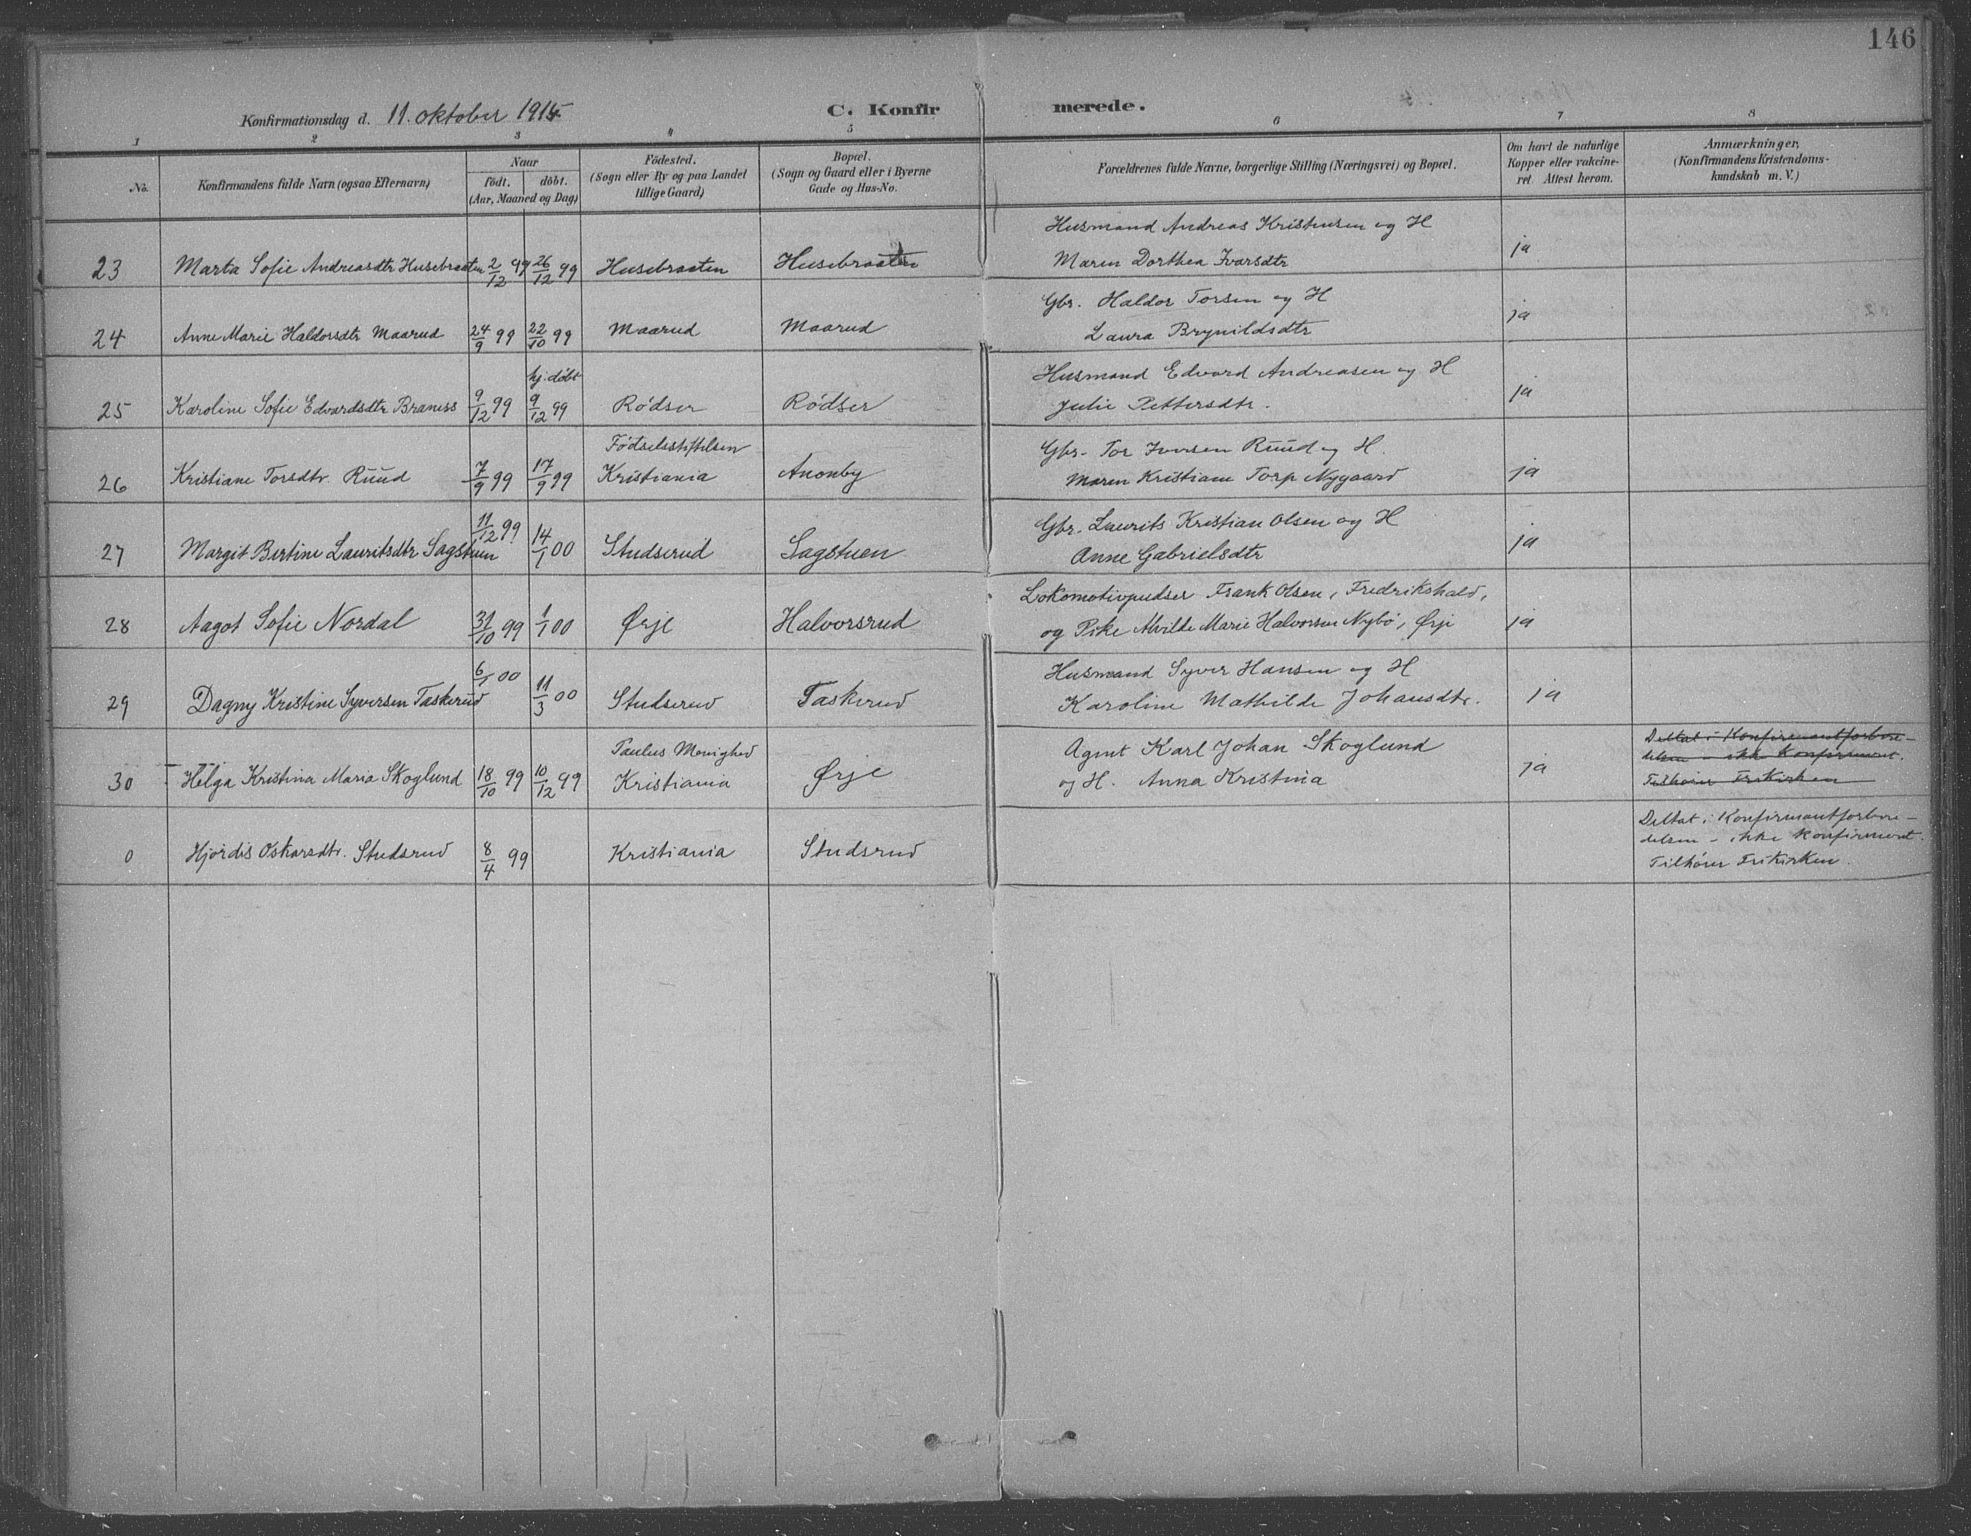 146
Konfirmationsdag d. 11. oktober 1914 C. Konfirmerede.
1 2 3 4 5 6 7 8
No. Konfirmandens fulde Navn (ogsaa Efternavn) Naar födt. döbt. (Aar, Maaned og Dag) Födested. (Sogn eller By og paa Landet tillige Gaard) Bopæl. (Sogn og Gaard eller i Byerne Gade og Hus-No. Forældrenes fulde Navne, borgerlige Stilling (Næringsvei) og Bopæl. Om havt de naturlige Kopper eller vakcineret. Attest herom. Anmærkninger, (Konfirmandens Kristendomskundskab m. V.)
23 Marta Sofie Andreasdtr Husebraaten 2/12 99 26/12 99 Husebraaten Husebraaten Husmand Andreas Kristensen og H
Maren Dorthea Ivarsdtr ja
24 Anne Marie Haldorsdtr Maarud 24/9 99 22/10 99 Maarud Maarud Gbr. Haldor Torsen og H
Laura Brynildsdtr ja
25 Karoline Sofie Edvardsdtr Braness 9/12 99 hj. döbt 9/12 99 Rödser Rödser Husmand Edvard Andreasen og H
Julie Pettersdtr. ja
26 Kristiane Torsdtr. Ruud 7/9 99 17/9 99 Födselsstiftelsen Kristiania Anonby Gbr. Tor Iversen Ruud og H.
Maren Kristiane Torp Nygaard ja
27 Margit Bertine Lauritsdtr Sagstuen 11/12 99 14/1 00 Studserud Sagstuen Gbr. Laurits Kristian Olsen og H
Anne Gabrielsdtr ja
28 Aagot Sofie Nordal 31/10 99 1/1 00 Ørje Halvorsrud Lokomotivpudser Frank Olsen, Fredrikshald,
og Pike Alvilde Marie Halvorsen Nybö, Ørje ja
29 Dagny Kristine Syversen Taskerud 6/1 00 11/3 00 Studserud Taskerud Husmand Syver Hansen og H
Karoline Mathilde Johansdtr. ja
30 Helga Kristina Maria Skoglund 18/10 99 10/12 99 Paulus Menighed Kristiania Ørje Agent Karl Johan Skoglund
og H. Anna Kristina ja Deltat i Konfirmantforbere-
delsen - ikke konfirmeret.
Tilhører Frikirken
0 Hjördis Oskarsdtr. Studsrud 8/4 99 Kristiania Studsrud Deltat i Konfirmantforbere-
delsen - ikke konfirmeret.
Tilhører Frikirken.